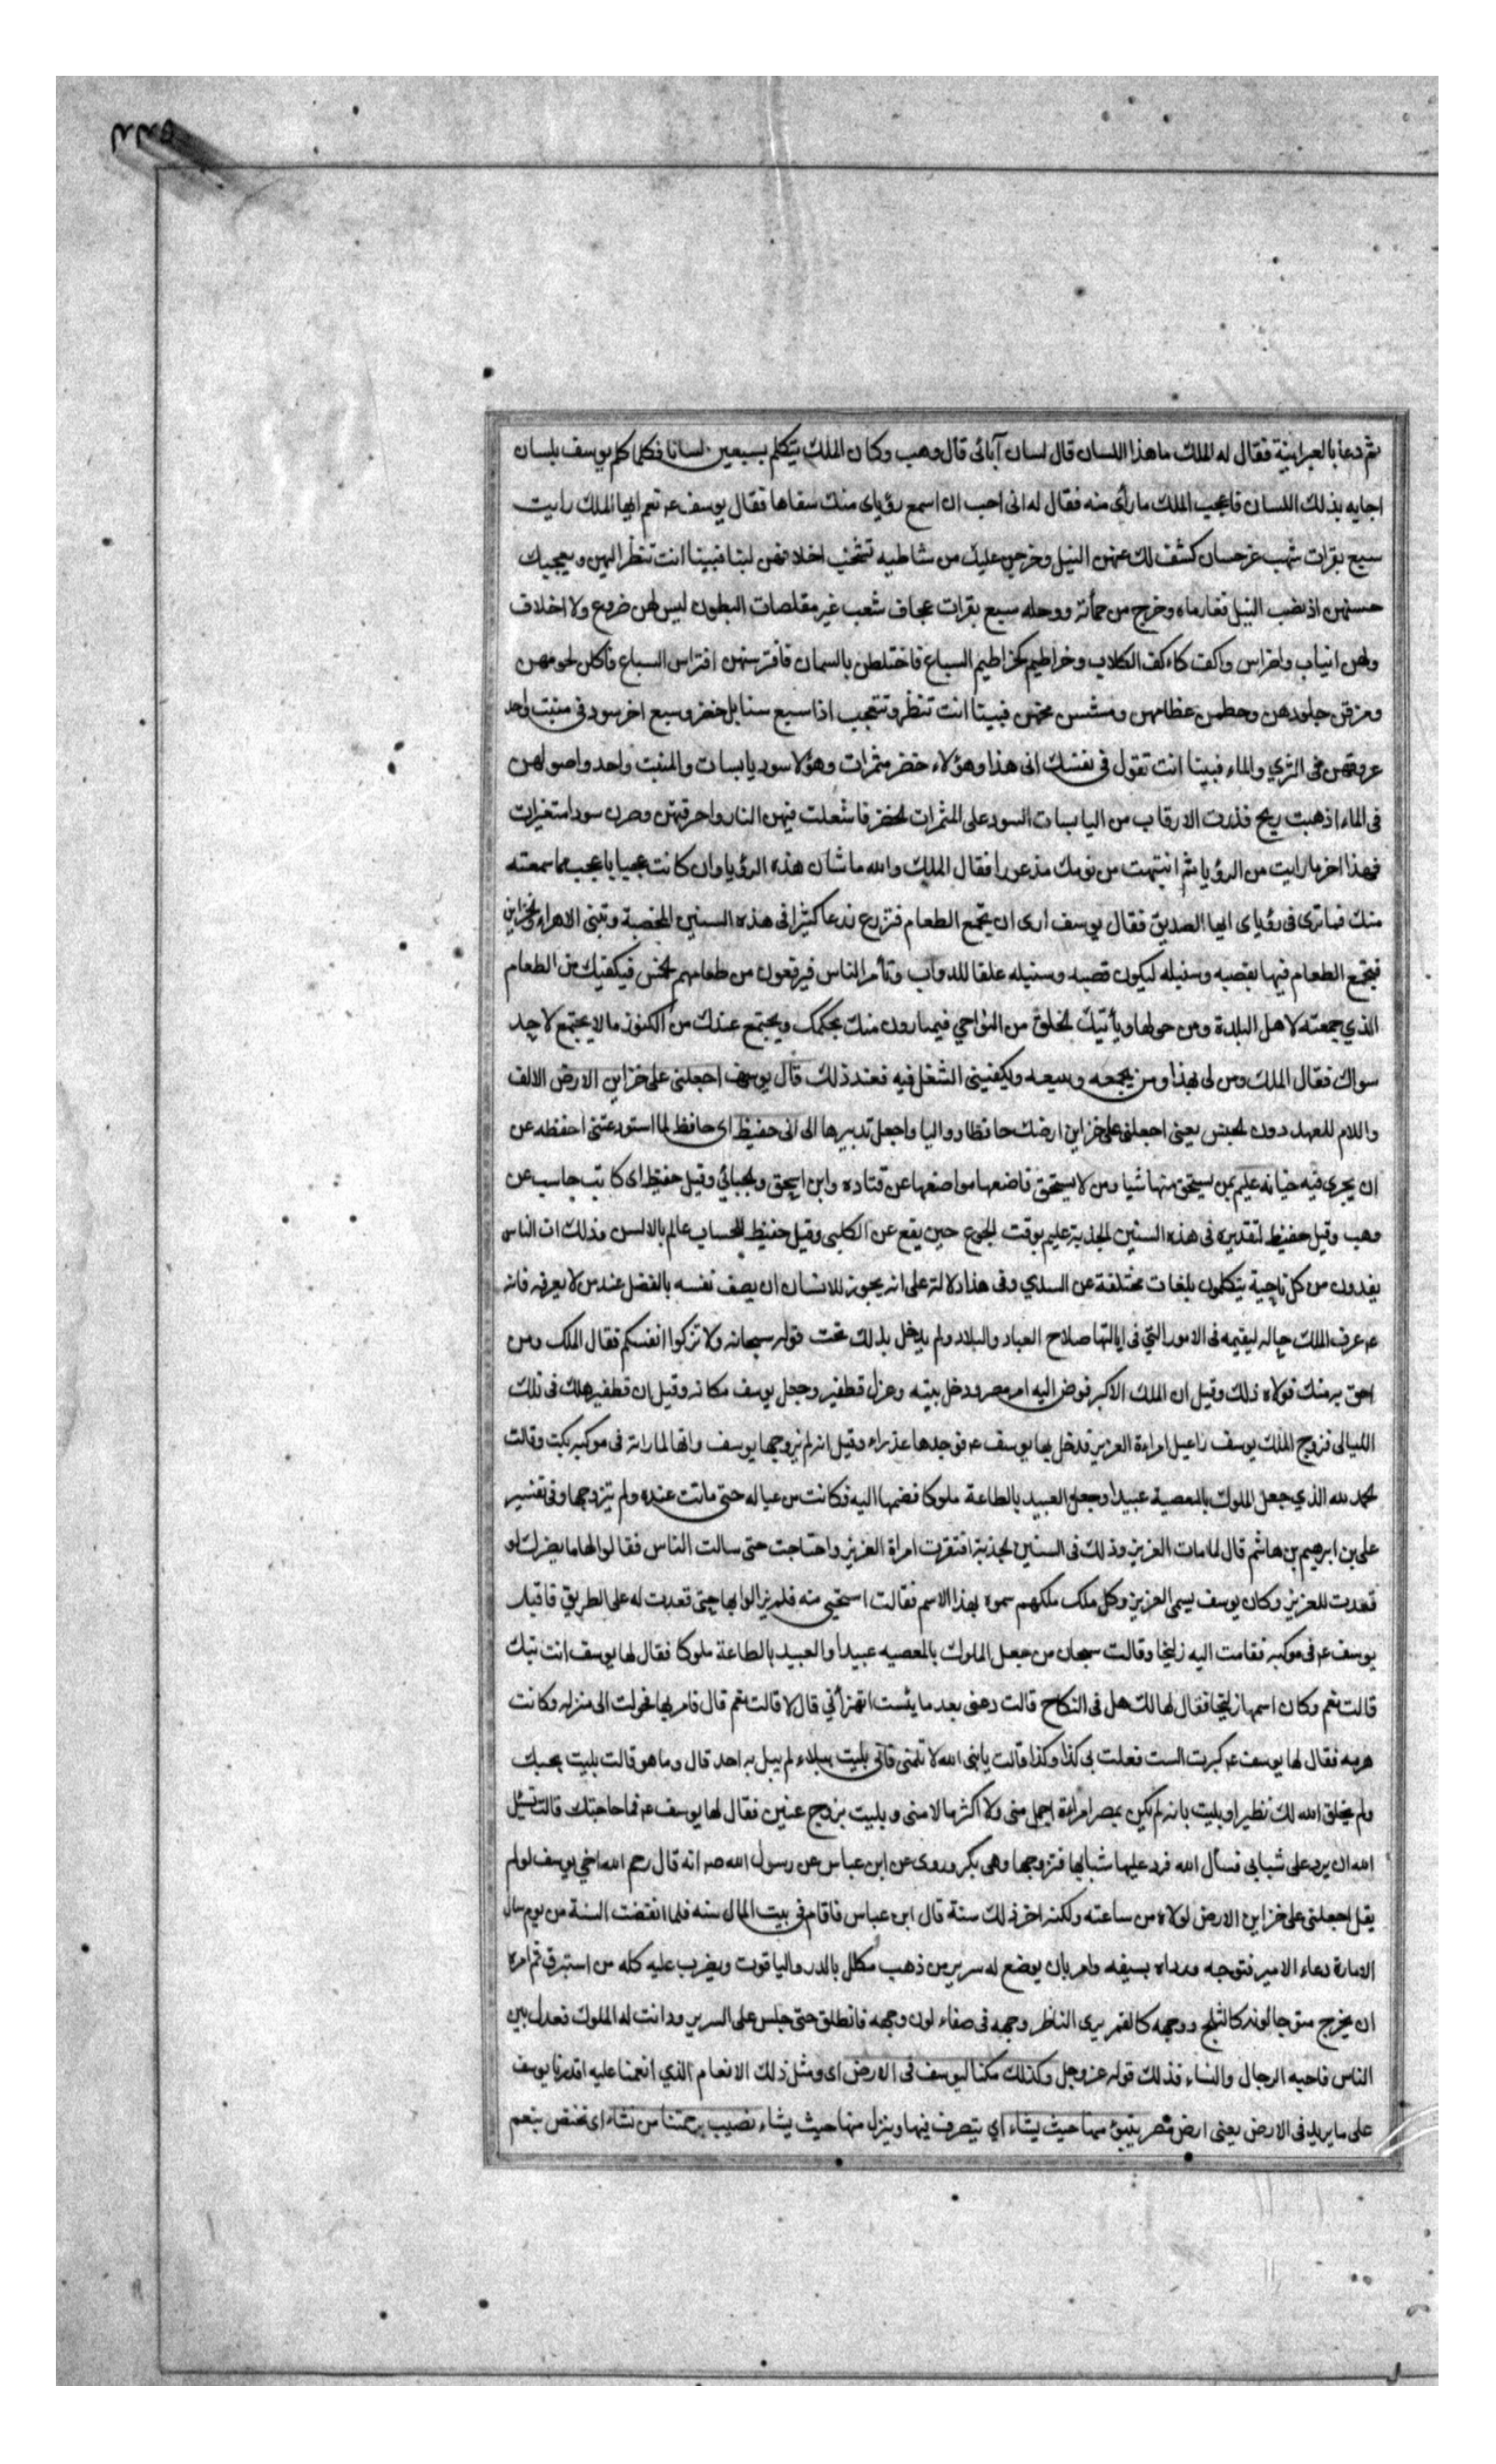 ٢٢٥
ثم دعا بالعبرانية فقال له الملك ما هذا اللسان قال لسان آبائى قال وهب وكان الملك يتكلم بسبعين لسانا فكلما كلم يوسف بلسان
اجابه بذلك اللسان فاعجب الملك ما رأى منه فقال له انى احب ان اسمع رؤياى منك سفاها فقال يوسف عم نعم ايها الملك رايت
سبع بقرات شهب غر حسان كشف لك عنهن النيل وخرجن عليك من شاطيه تشخب اخلافهن لبنا فبينا انت تنظر اليهن ويعجبك
حسنهن اذ نضب النيل فغار ماه وخرج من حمأته ووحله سبع بقرات عجاف شعب غير مقلصات البطون ليس لهن ضروع ولا اخلاف
ولهن انياب واضراس واكف كاكف الكلاب وخراطيم كخراطيم السباع فاختلطن بالسمان فافترستهن افتراس السباع فاكلن لحومهن
ومزقن جلودهن وحطمن عظامهن ومششن مخهن فبينا انت تنظر وتتعجب اذا سبع سنابل خضر وسبع اخر سود فى منبت واحد
عروقهن فى الثري والماء فبينا انت تقول فى نفسك انى هذا وهؤلاء خضر مثمرات وهؤلا سود يابسات والمنبت واحد واصولهن
فى الماء اذ هبت ريح فذرت الارقاب من اليابسات السود على المثمرات الخضر فاشعلت فيهن النار واحرقتهن وصرن سودا متغيرات
فهذا اخر ما رايت من الرؤيا ثم انتبهت من نومك مذعورا فقال الملك والله ما شان هذه الرؤيا وان كانت عجبا باعجب مما سمعته
منك فما ترى فى رؤياى ايها الصديق فقال يوسف ارى ان تجمع الطعام فتزرع زرعا كثيرا فى هذه السنين المخصبة وتبنى الاهراء والخزاين
فيجمع الطعام فيها بقصبه وسنبله ليكون قصبه وسنبله علفا للدواب وتأمر الناس فيرفعون من طعامهم الخمس فيكفيك من الطعام
الذي جمعته لاهل البلدة ومن حولها ويأتيك الخلق من النواحي فيمتارون منك بحكمك ويجتمع عندك من الكنوز ما لا يجتمع لاحد
سواك فقال الملك ومن لى بهذا ومن يجمعه ويبيعه ويكفينى الشغل فيه فعند ذلك قال يوسف اجعلنى على خزاين الارض الالف
واللام للعهد دون الجنس يعنى اجعلنى على خزاين ارضك حافظا وواليا واجعل تدبيرها الى انى حفيظ اى حافظ لما استودعتنى احفظه عن
ان يجرى فيه خيانة عليم بمن يستحق منها شيا ومن لا يستحق فاضعها مواضعها عن قتاده وابن اسحق والجبائي وقيل حفيظ اى كاتب حاسب عن
وهب وقيل حفيظ لتقديره فى هذه السنين الجدبة عليم بوقت الجوع حين يقع عن الكلبى وقيل حفيظ للحساب عالم بالالسن وذلك ان الناس
يفدون من كل ناحية يتكلمون بلغات مختلفة عن السدي وفى هذا دلالة على انه يجوز للانسان ان يصف نفسه بالفضل عند من لا يعرفه فانه
عم عرف الملك حاله ليقيمه فى الامور التي فى ايالتها صلاح العباد والبلاد ولم يدخل بذلك تحت قوله سبحانه ولا تزكوا انفسكم فقال الملك ومن
احق به منك فولاه ذلك وقيل ان الملك الاكبر فوض اليه امر مصر ودخل بيته وعزل قطفير وجعل يوسف مكانه وقيل ان قطفير هلك فى تلك
الليالى فزوج الملك يوسف راعيل امراءة العزيز فدخل بها يوسف عم فوجدها عذراء وقيل انه لم يزوجها يوسف وانها لما راته فى موكبه بكت وقالت
الحمد لله الذي جعل الملوك بالمعصية عبيدا وجعل العبيد بالطاعة ملوكا فضمها اليه فكانت من عياله حتى ماتت عنده ولم يتزوجها وفى تفسير
على بن ابرهيم بن هاشم قال لما مات العزيز وذلك فى السنين الجدبة افتقرت امراة العزيز واحتاجت حتى سالت الناس فقالوا لها ما يضرك لو
قعدت للعزيز وكان يوسف يسمى العزيز وكل ملك ملكهم سموه بهذا الاسم فقالت استحيى منه فلم يزالوا بها حتى قعدت له على الطريق فاقبل
يوسف عم فى موكبه فقامت اليه زليخا وقالت سبحان من جعل الملوك بالمعصيه عبيدا والعبيد بالطاعة ملوكا فقال لها يوسف انت تيك
قالت نعم وكان اسمها زليخا فقال لها لك هل فى النكاح قالت دعنى بعد ما يئست اتهزأني قال لا قالت نعم قال فامر بها فحولت الى منزله وكانت
هرمه فقال لها يوسف عم كبرت الست فعلت بى كذا وكذا قالت يا نبى الله لا تلمنى فانى بليت ببلاء لم يبل به احد قال وما هو قالت بليت بحبك
ولم يخلق الله لك نظيرا وبليت بانه لم يكن بمصر امراءة اجمل منى ولا اكثر مالا منى وبليت بزوج عنين فقال لها يوسف عم فما حاجتك قالت تسئل
الله ان يرد على شبابي فسأل الله فرد عليها شبابها فتزوجها وهى بكر وروى عن ابن عباس عن رسول الله صم انه قال رحم الله اخي يوسف لو لم
يقل اجعلنى على خزاين الارض لولاه من ساعته ولكنه اخر ذلك سنة قال ابن عباس فاقام فى بيت المال سنه فلما انقضت السنة من يوم سال
الامارة دعاه الامير فتوجه ورداه بسيفه وامر بان يوضع له سرير من ذهب مكلل بالدر والياقوت ويضرب عليه كله من استبرق ثم امره
ان يخرج متوجا لونه كالثلج ووجهه كالقمر يرى الناظر وجهه فى صفاء لون وجهه فانطلق حتى جلس على السرير ودانت له الملوك فعدل بين
الناس فاحبه الرجال والنساء فذلك قوله عز وجل وكذلك مكنا ليوسف فى الارض اى ومثل ذلك الانعام الذي انعمنا عليه اقدرنا يوسف
على ما يريد فى الارض يعنى ارض مصر يتبوء منها حيث يشاء اي يتصرف فيها وينزل منها حيث يشاء نصيب برحمتنا من نشاء اى نختص بنعم